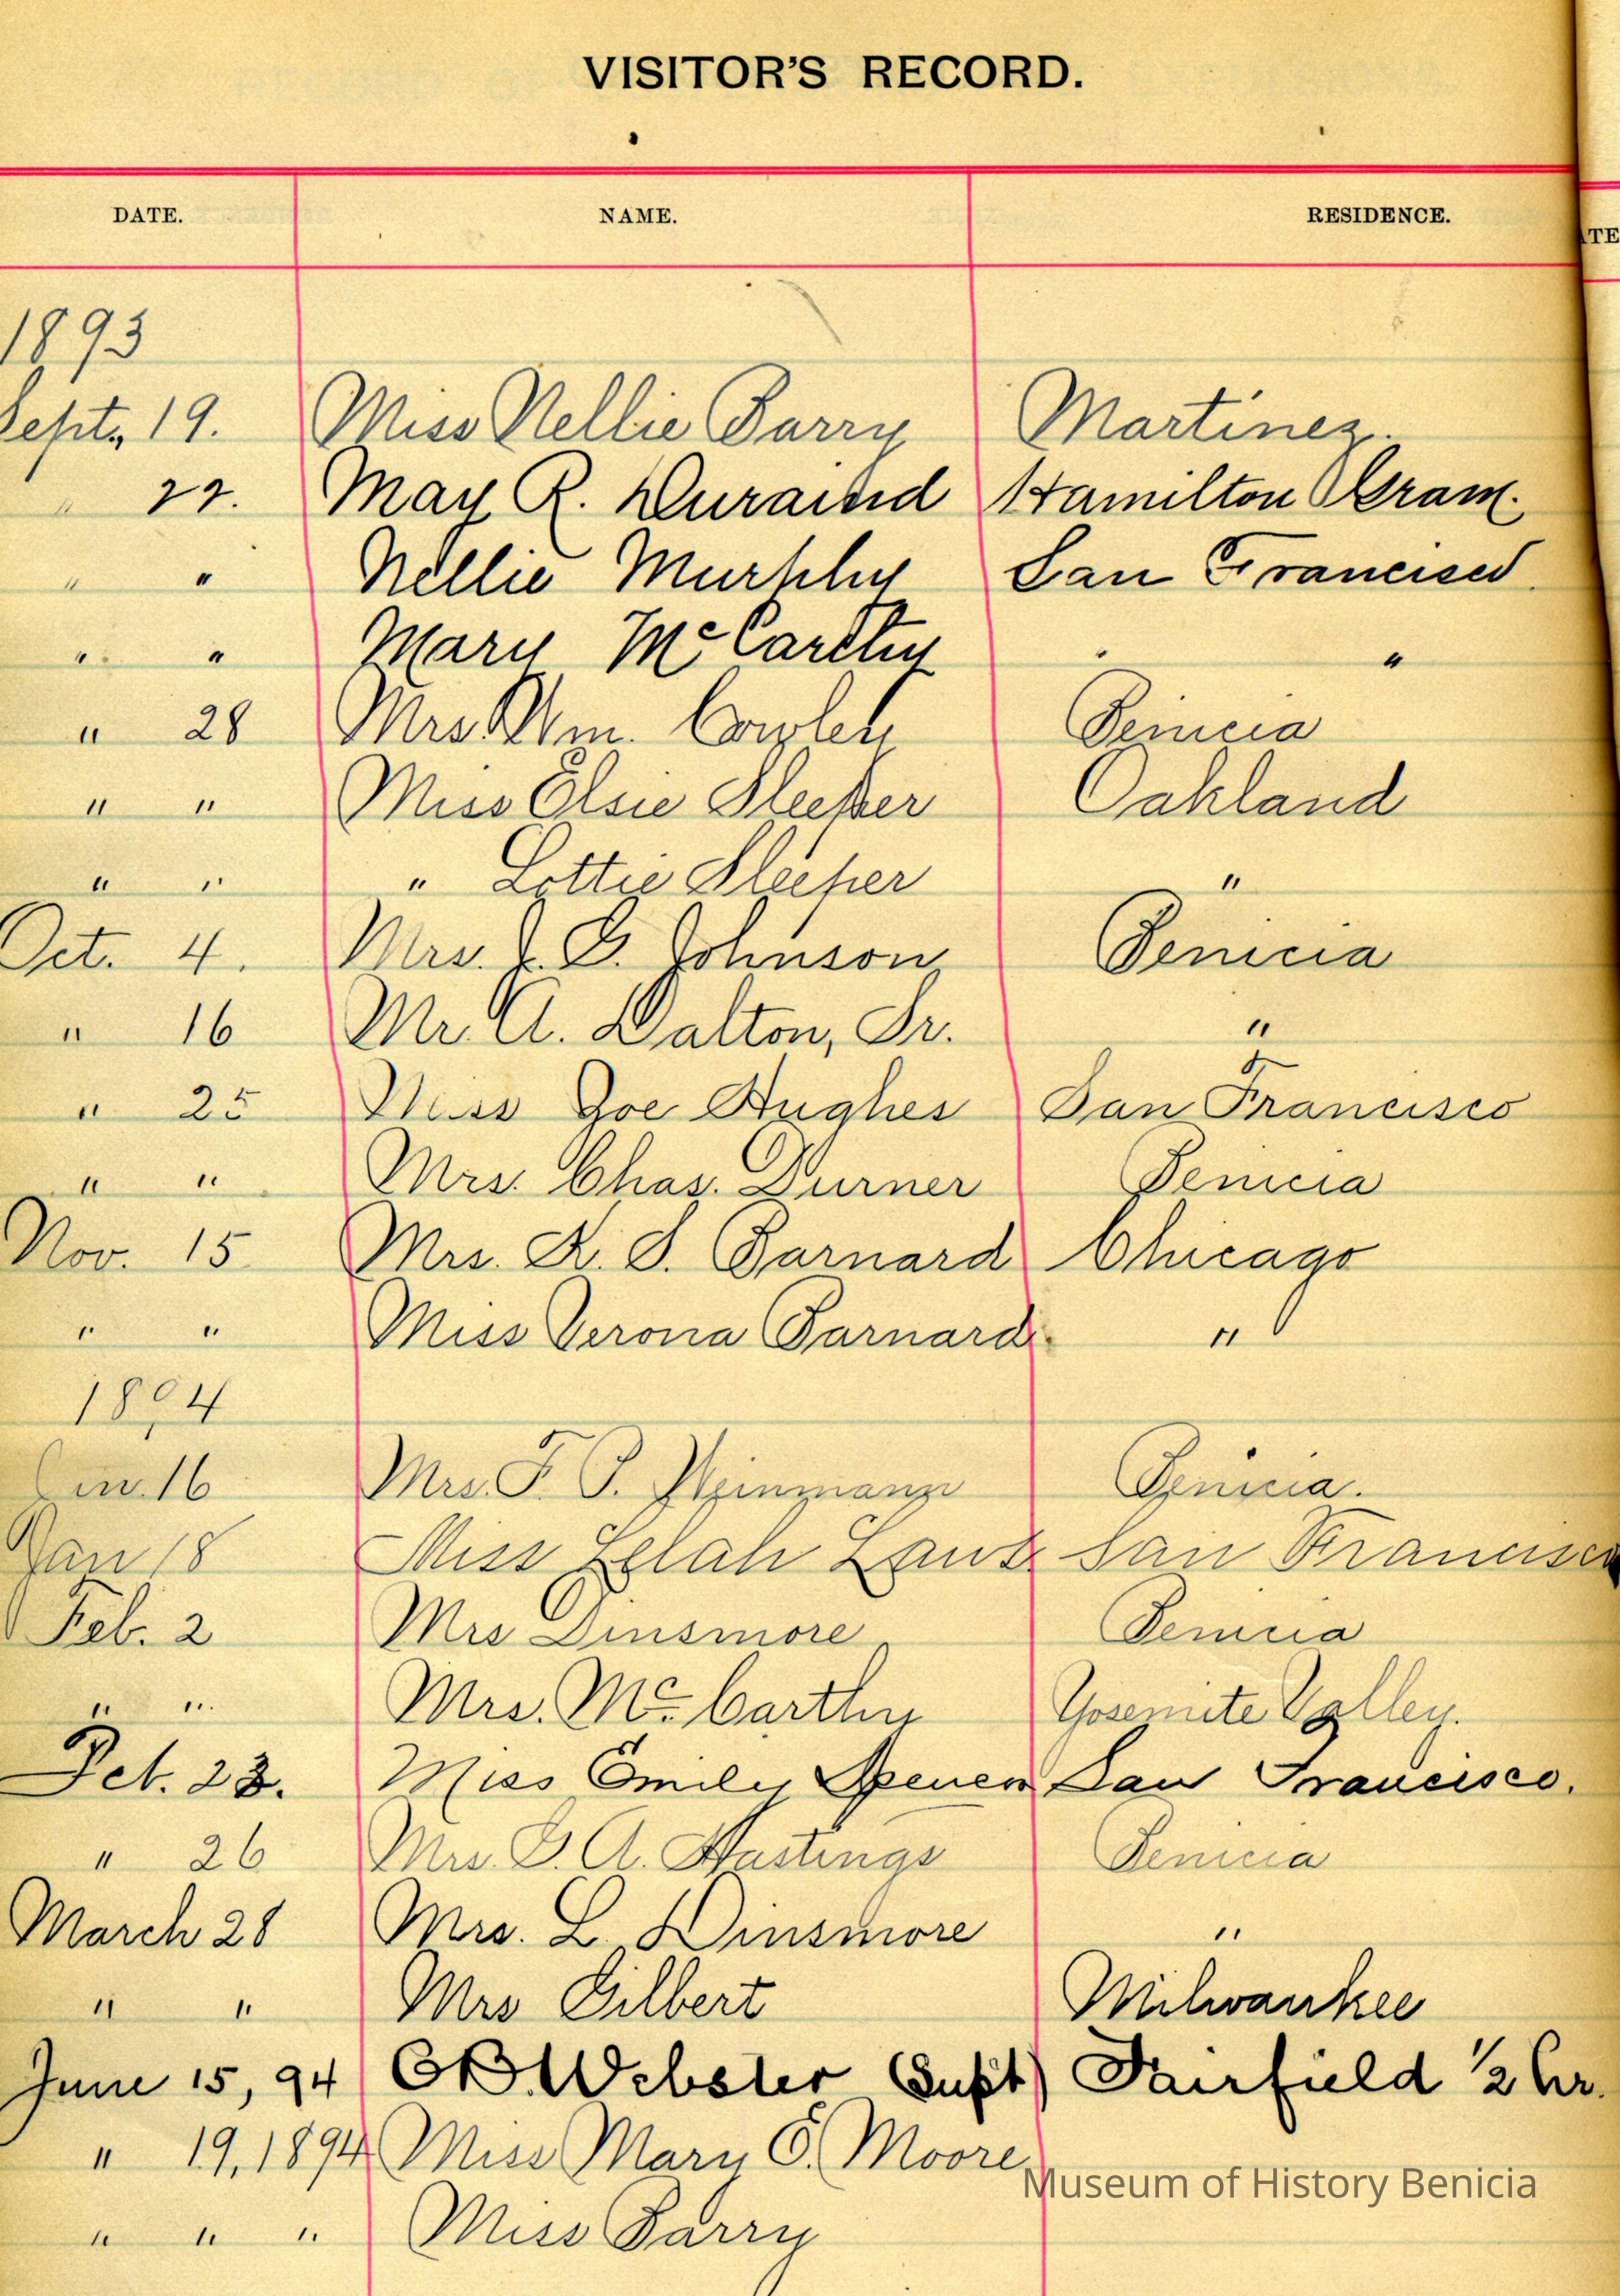 VISITOR'S RECORD.
DATE. NAME. RESIDENCE.
1893
Sept. 19. Miss Nellie Barry Martinez.
" 22. May R. Hamilton Gram.
" " Nellie Murphy San Francisco
" " Mary McCarthy " "
" 28 Mrs Wm. Cowley Benicia
" " Miss Elsie Sleeper Oakland
" " " Lottie Sleeper "
Oct. 4. Mrs. J. B. Johnson Benicia
" 16 Mr. A. Dalton, Sr. "
" 25 Miss Joe Hughes San Francisco
" " Mrs. Chas. Durner Benicia
Nov. 15 Mrs. K. S. Barnard Chicago
" " Miss Verona Barnard. "
1894
Jan. 16 Mrs. F. P. Weinmann Benicia.
Jan 18 Miss Lelah San Francisco
Feb. 2 Mrs Dinsmore Benicia
" " Mrs. McCarthy Yosemite Valley.
Feb. 23. Miss Emily San Francisco.
" 26 Mrs. D. A. Hastings Benicia
March 28 Mrs. L. Dinsmore "
" " Mrs Gilbert Milwaukee
June 15, 94 C B Webster (Supt) Fairfield 1/2 hr.
" 19, 1894 Miss Mary E. Moore
" " " Miss Barry
Museum of History Benicia